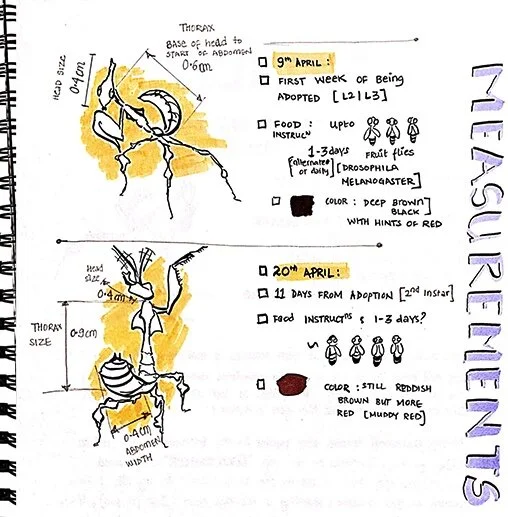 THORAX
BASE OF HEAD TO
START OF ABDOMEN
0.6cm
HEAD SIZE
0.4cm
9th APRIL :
FIRST WEEK OF BEING
ADOPTED [L2/L3]
FOOD : UPTO
INSTRUCN
1-3 days FRUIT FLIES
[alternate or daily] [DROSOPHILA
MELANOGASTER]
COLOR : DEEP BROWN/
BLACK]
WITH HINTS OF RED
Head
size
0.4cm
THORAX
SIZE
0.9cm
0.4cm
ABDOMEN
WIDTH
20th APRIL :
11 DAYS FROM ADOPTION [2nd Instar]
FOOD INSTRUCTNS : 1-3 DAYS?
COLOR : STILL REDDISH
BROWN BUT MORE
RED [MUDDY RED]
MEASUREMENTS